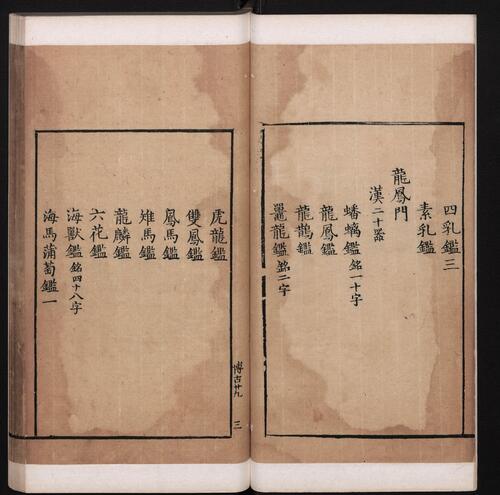 四乳鑑三
素乳鑑
龍鳳門
漢二十器
蟠螭鑑銘一十字
龍鳳鑑
龍鵲鑑
鼉龍鑑銘二字
虎龍鑑
雙鳳鑑
鳳馬鑑
雉馬鑑
龍麟鑑
六花鑑
海獸鑑銘四十八字
海馬蒲萄鑑一
博古廿九
三